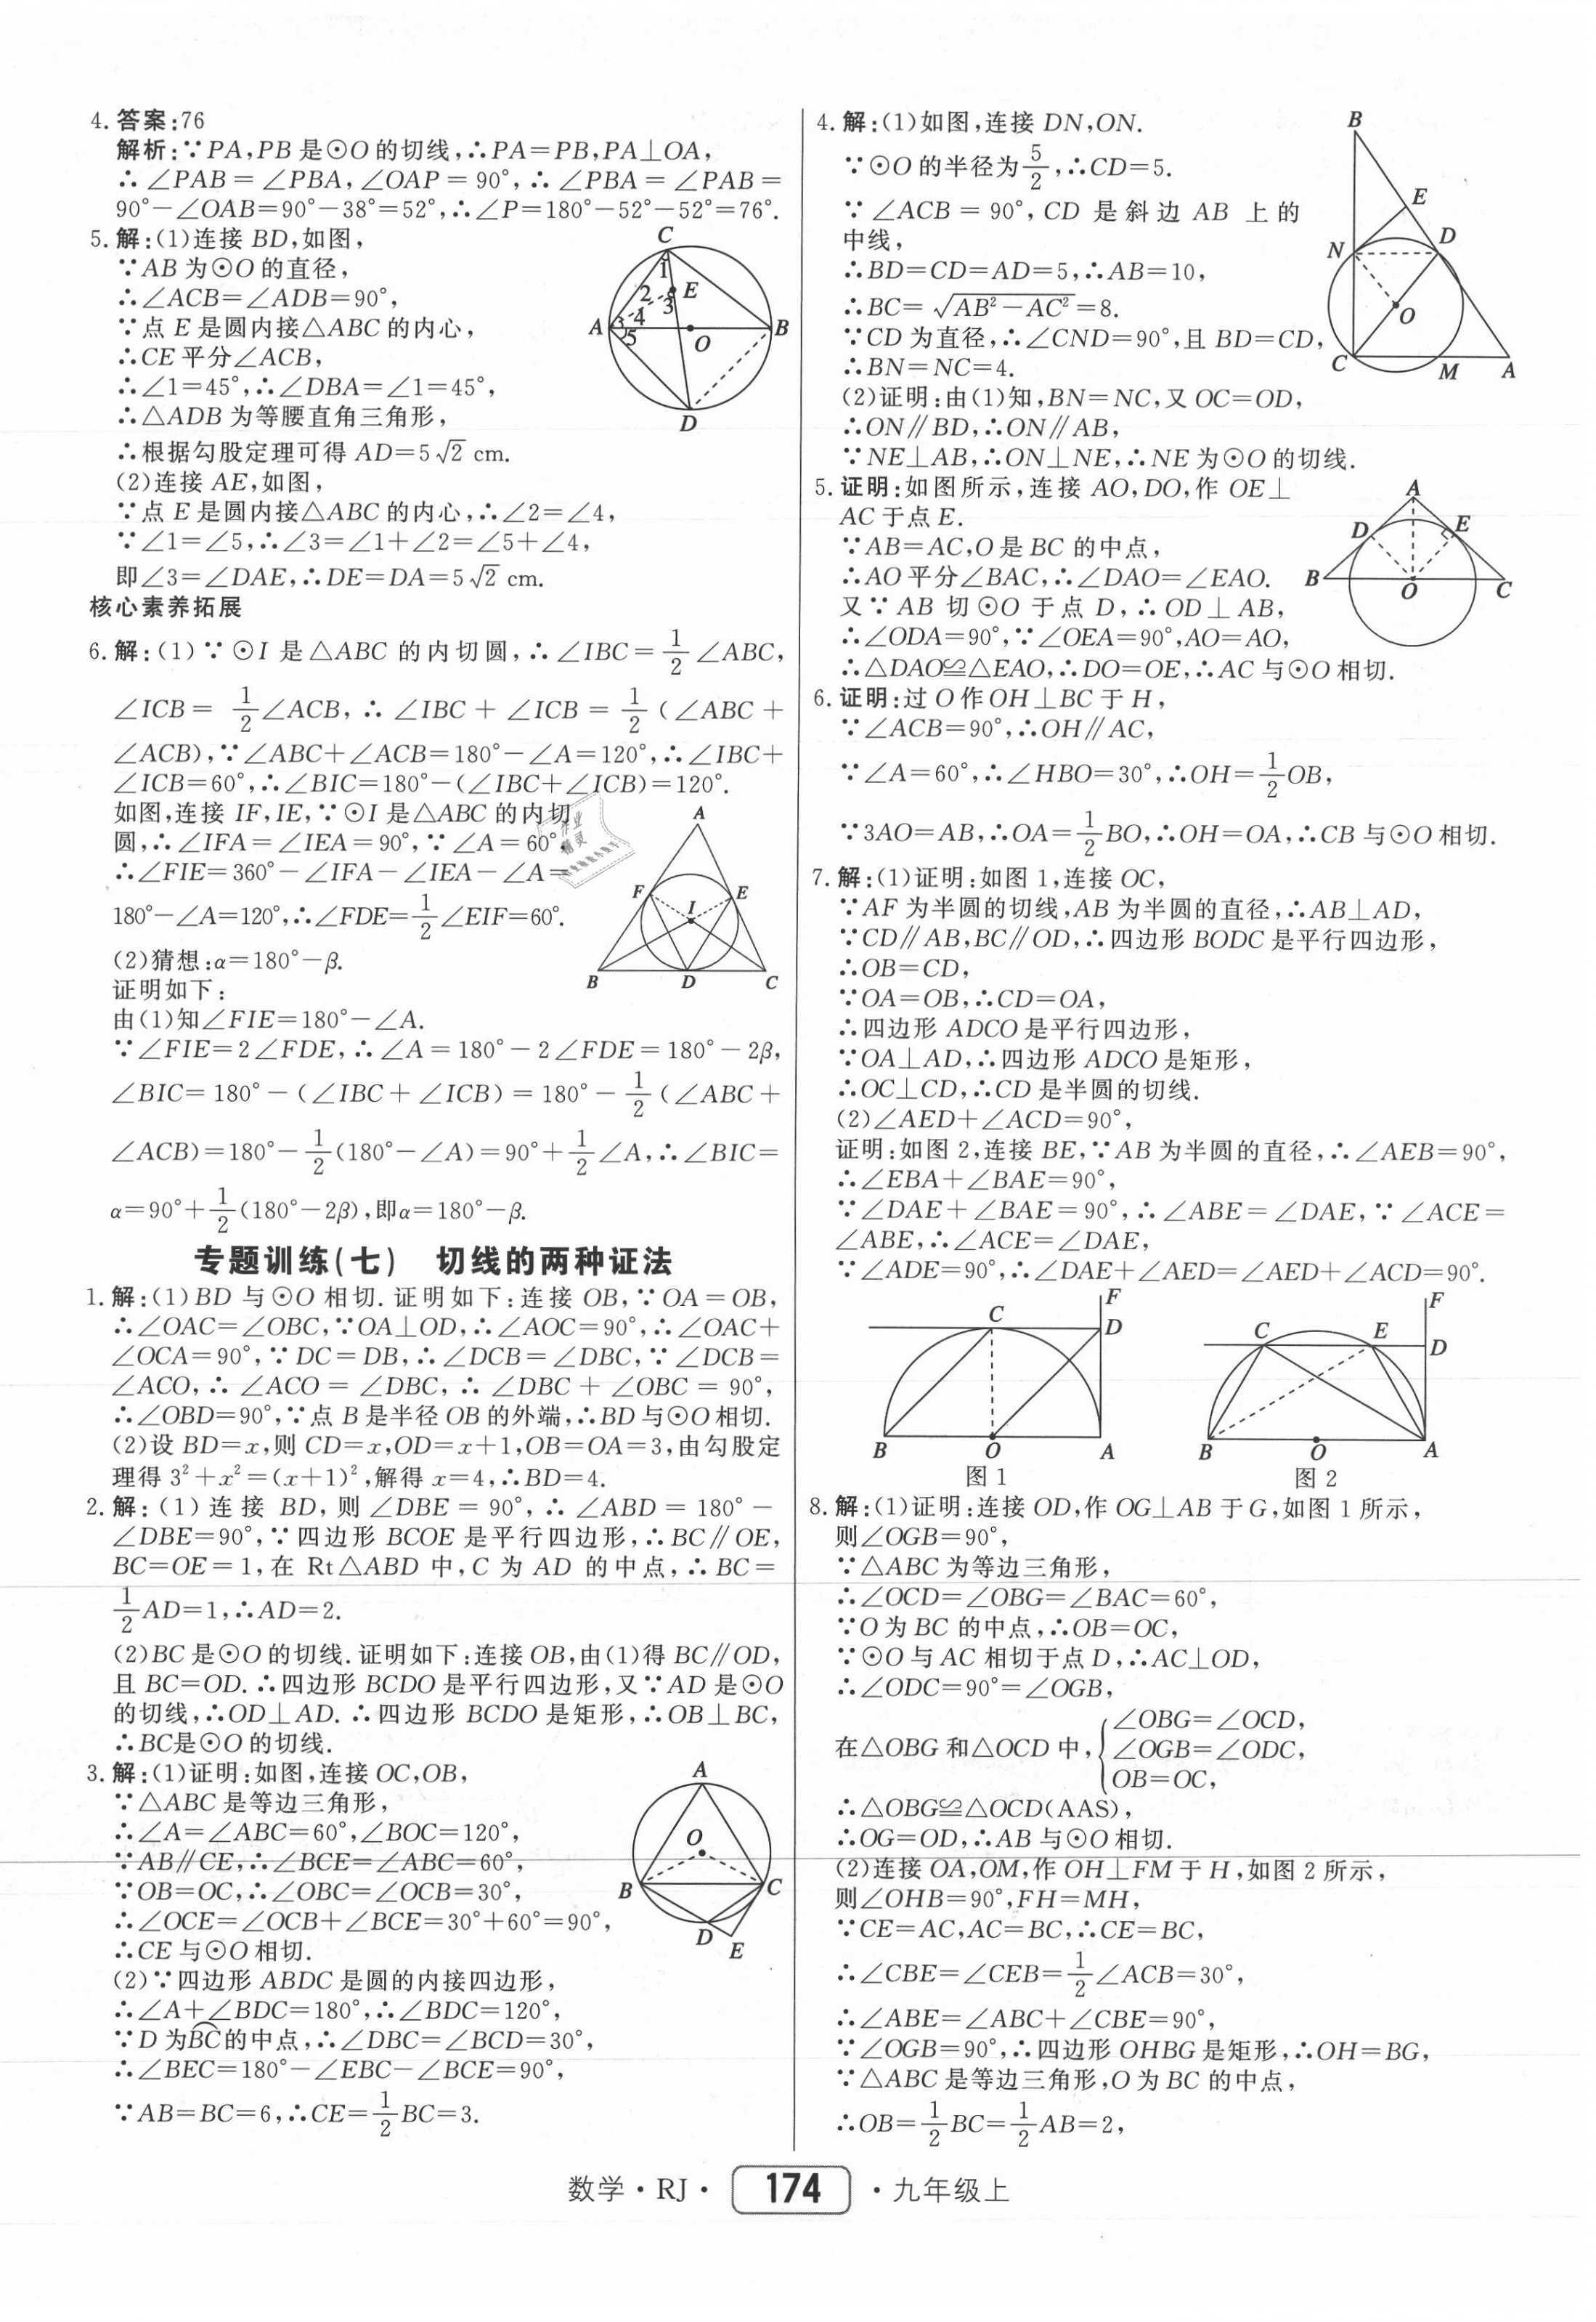 4.答案:76
解析:∵PA,PB是⊙O的切线,∴PA=PB,PA⊥OA,
∴∠PAB=∠PBA,∠OAP=90°,∴∠PBA=∠PAB=
90°-∠OAB=90°-38°=52°,∴∠P=180°-52°-52°=76°.
5.解:(1)连接BD,如图,
∵AB为⊙O的直径,
∴∠ACB=∠ADB=90°,
∵点E是圆内接△ABC的内心,
∴CE平分∠ACB,
∴∠1=45°,∴∠DBA=∠1=45°,
∴△ADB为等腰直角三角形,
∴根据勾股定理可得AD=5√2 cm.
(2)连接AE,如图,
∵点E是圆内接△ABC的内心,∴∠2=∠4,
∵∠1=∠5,∴∠3=∠1+∠2=∠5+∠4,
即∠3=∠DAE,∴DE=DA=5√2 cm.
C
1
2
E
3
A
3
4
5
O
B
D
核心素养拓展
6.解:(1)∵⊙I是△ABC的内切圆,∴∠IBC=1/2∠ABC,
∠ICB=1/2∠ACB,∴∠IBC+∠ICB=1/2(∠ABC+
∠ACB),∵∠ABC+∠ACB=180°-∠A=120°,∴∠IBC+
∠ICB=60°,∴∠BIC=180°-(∠IBC+∠ICB)=120°.
如图,连接IF,IE,∵⊙I是△ABC的内切
圆,∴∠IFA=∠IEA=90°,∵∠A=60°,
∴∠FIE=360°-∠IFA-∠IEA-∠A=
180°-∠A=120°,∴∠FDE=1/2∠EIF=60°.
(2)猜想:α=180°-β.
证明如下:
由(1)知∠FIE=180°-∠A.
A
F
E
I
B
D
C
∵∠FIE=2∠FDE,∴∠A=180°-2∠FDE=180°-2β,
∠BIC=180°-(∠IBC+∠ICB)=180°-1/2(∠ABC+
∠ACB)=180°-1/2(180°-∠A)=90°+1/2∠A,∴∠BIC=
α=90°+1/2(180°-2β),即α=180°-β.
专题训练(七) 切线的两种证法
1.解:(1)BD与⊙O相切.证明如下:连接OB,∵OA=OB,
∴∠OAC=∠OBC,∵OA⊥OD,∴∠AOC=90°,∴∠OAC+
∠OCA=90°,∵DC=DB,∴∠DCB=∠DBC,∵∠DCB=
∠ACO,∴∠ACO=∠DBC,∴∠DBC+∠OBC=90°,
∴∠OBD=90°,∵点B是半径OB的外端,∴BD与⊙O相切.
(2)设BD=x,则CD=x,OD=x+1,OB=OA=3,由勾股定
理得3²+x²=(x+1)²,解得x=4,∴BD=4.
2.解:(1)连接BD,则∠DBE=90°,∴∠ABD=180°-
∠DBE=90°,∵四边形BCOE是平行四边形,∴BC∥OE,
BC=OE=1,在Rt△ABD中,C为AD的中点,∴BC=
1/2AD=1,∴AD=2.
(2)BC是⊙O的切线.证明如下:连接OB,由(1)得BC∥OD,
且BC=OD.∴四边形BCDO是平行四边形,又∵AD是⊙O
的切线,∴OD⊥AD.∴四边形BCDO是矩形,∴OB⊥BC,
∴BC是⊙O的切线.
3.解:(1)证明:如图,连接OC,OB,
∵△ABC是等边三角形,
∴∠A=∠ABC=60°,∠BOC=120°,
∵AB∥CE,∴∠BCE=∠ABC=60°,
∵OB=OC,∴∠OBC=∠OCB=30°,
∴∠OCE=∠OCB+∠BCE=30°+60°=90°,
∴CE与⊙O相切.
A
O
B
C
D
E
(2)∵四边形ABDC是圆的内接四边形,
∴∠A+∠BDC=180°,∴∠BDC=120°,
∵D为BC⌒的中点,∴∠DBC=∠BCD=30°,
∴∠BEC=180°-∠EBC-∠BCE=90°,
∵AB=BC=6,∴CE=1/2BC=3.
4.解:(1)如图,连接DN,ON.
∵⊙O的半径为5/2,∴CD=5.
∵∠ACB=90°,CD是斜边AB上的
中线,
∴BD=CD=AD=5,∴AB=10,
∴BC=√(AB²-AC²)=8.
∵CD为直径,∴∠CND=90°,且BD=CD,
∴BN=NC=4.
B
E
N
D
O
C
M
A
(2)证明:由(1)知,BN=NC,又OC=OD,
∴ON∥BD,∴ON∥AB,
∵NE⊥AB,∴ON⊥NE,∴NE为⊙O的切线.
5.证明:如图所示,连接AO,DO,作OE⊥
AC于点E.
∵AB=AC,O是BC的中点,
∴AO平分∠BAC,∴∠DAO=∠EAO.
又∵AB切⊙O于点D,∴OD⊥AB,
∴∠ODA=90°,∵∠OEA=90°,AO=AO,
∴△DAO≌△EAO,∴DO=OE,∴AC与⊙O相切.
A
D
E
B
O
C
6.证明:过O作OH⊥BC于H,
∵∠ACB=90°,∴OH∥AC,
∵∠A=60°,∴∠HBO=30°,∴OH=1/2OB,
∵3AO=AB,∴OA=1/2BO,∴OH=OA,∴CB与⊙O相切.
7.解:(1)证明:如图1,连接OC,
∵AF为半圆的切线,AB为半圆的直径,∴AB⊥AD,
∵CD∥AB,BC∥OD,∴四边形BODC是平行四边形,
∴OB=CD,
∵OA=OB,∴CD=OA,
∴四边形ADCO是平行四边形,
∵OA⊥AD,∴四边形ADCO是矩形,
∴OC⊥CD,∴CD是半圆的切线.
(2)∠AED+∠ACD=90°,
证明:如图2,连接BE,∵AB为半圆的直径,∴∠AEB=90°,
∴∠EBA+∠BAE=90°,
∵∠DAE+∠BAE=90°,∴∠ABE=∠DAE,∵∠ACE=
∠ABE,∴∠ACE=∠DAE,
∵∠ADE=90°,∴∠DAE+∠AED=∠AED+∠ACD=90°.
C
F
D
B
O
A
图1
C
E
F
D
B
O
A
图2
8.解:(1)证明:连接OD,作OG⊥AB于G,如图1所示,
则∠OGB=90°,
∵△ABC为等边三角形,
∴∠OCD=∠OBG=∠BAC=60°,
∵O为BC的中点,∴OB=OC,
∵⊙O与AC相切于点D,∴AC⊥OD,
∴∠ODC=90°=∠OGB,
在△OBG和△OCD中,{∠OBG=∠OCD,
∠OGB=∠ODC,
OB=OC,
∴△OBG≌△OCD(AAS),
∴OG=OD,∴AB与⊙O相切.
(2)连接OA,OM,作OH⊥FM于H,如图2所示,
则∠OHB=90°,FH=MH,
∵CE=AC,AC=BC,∴CE=BC,
∴∠CBE=∠CEB=1/2∠ACB=30°,
∴∠ABE=∠ABC+∠CBE=90°,
∵∠OGB=90°,∴四边形OHBG是矩形,∴OH=BG,
∵△ABC是等边三角形,O为BC的中点,
∴OB=1/2BC=1/2AB=2,
数学·RJ· 174 ·九年级上